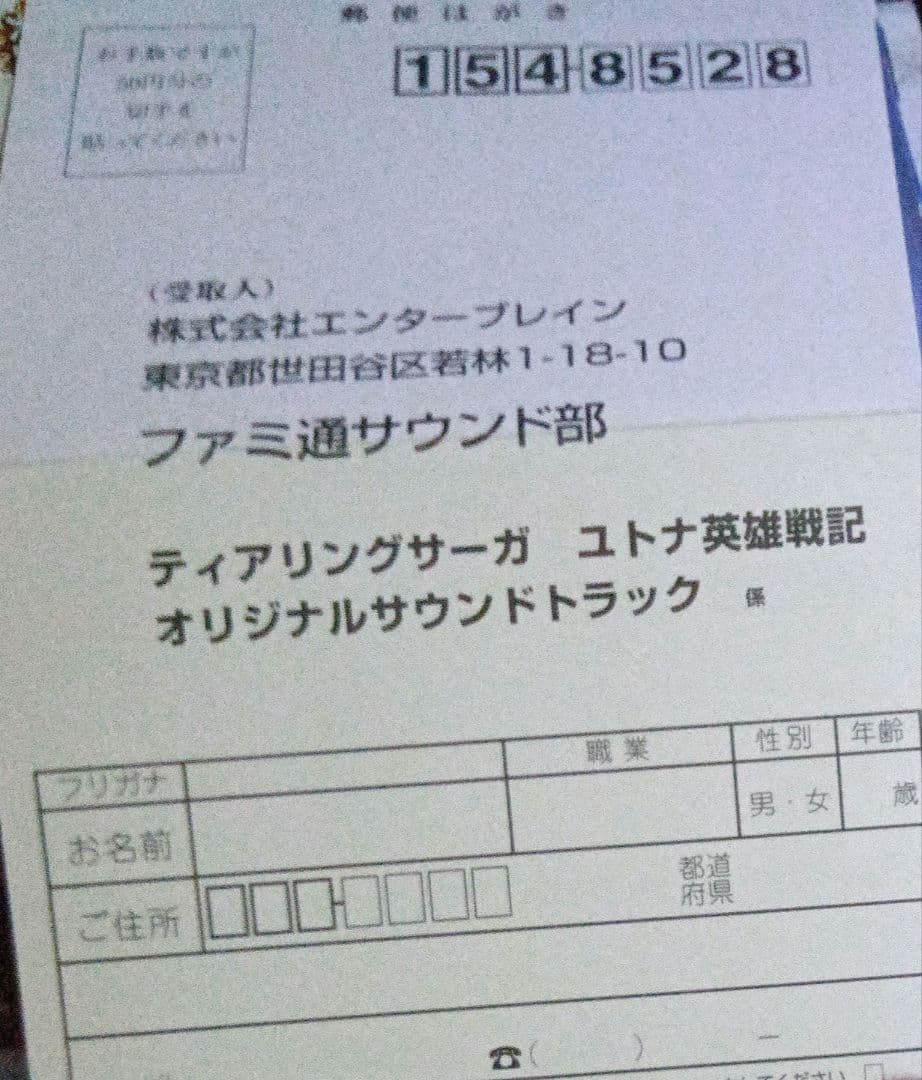 郵便はがき
お手数ですが
50円分の
切手を
貼ってください
154-8528
(受取人)
株式会社エンターブレイン
東京都世田谷区若林1-18-10
ファミ通サウンド部
ティアリングサーガ ユトナ英雄戦記
オリジナルサウンドトラック 係
フリガナ 職業 性別 年齢
お名前 男・女 歳
ご住所 - 都道
府県
☎( ) −
てください